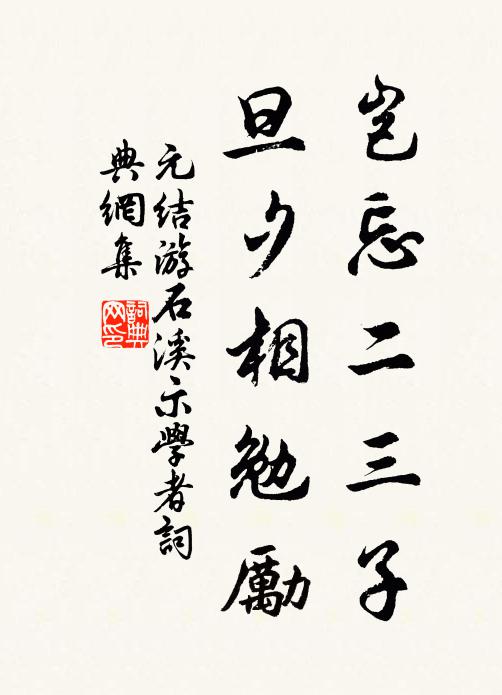 岂忘二三子
旦夕相勉勵
元结游石溪示學者詞
典網集
詞典
网印